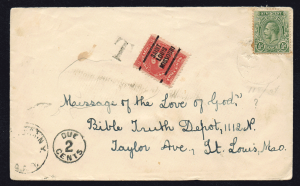 T
Message of the Love of God,
Bible Truth Depot, 1112 N.
Taylor Ave., St. Louis, Mo.
DUE
2
CENTS